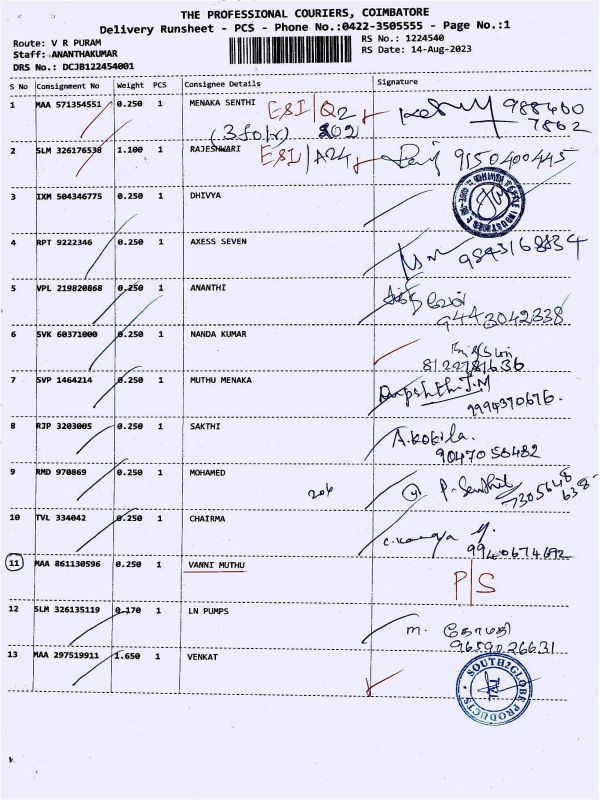 THE PROFESSIONAL COURIERS, COIMBATORE
Delivery Runsheet - PCS - Phone No.:0422-3505555 - Page No.:1
Route: V R PURAM
RS No.: 1224540
Staff: ANANTHAKUMAR
RS Date: 14-Aug-2023
DRS No.: DCJB122454001
S No Consignment No Weight PCS Consignee Details Signature
1 MAA 571354551 0.250 1 MENAKA SENTHI ESI/Q2 988460
7862
202
2 SLM 326176538 1.100 1 RAJESHWARI ESI/A24 9150400445
3 IXM 504346775 0.250 1 DHIVYA
4 RPT 9222346 0.250 1 AXESS SEVEN 9843168834
5 VPL 219820868 0.250 1 ANANTHI
9443042338
6 SVK 60371000 0.250 1 NANDA KUMAR
8122781636
7 SVP 1464214 0.250 1 MUTHU MENAKA
9994370676.
8 RJP 3203005 0.250 1 SAKTHI A.Kokila.
9047056482
9 RMD 970869 0.250 1 MOHAMED 206 P. Senthil
7305648
638
10 TVL 334042 0.250 1 CHAIRMA
9940674672
11 MAA 861130596 0.250 1 VANNI MUTHU P/S
12 SLM 326135119 0.170 1 LN PUMPS m. கோமதி
9659026631
13 MAA 297519911 1.650 1 VENKAT SOUTH2GLOBE PRODUCTS